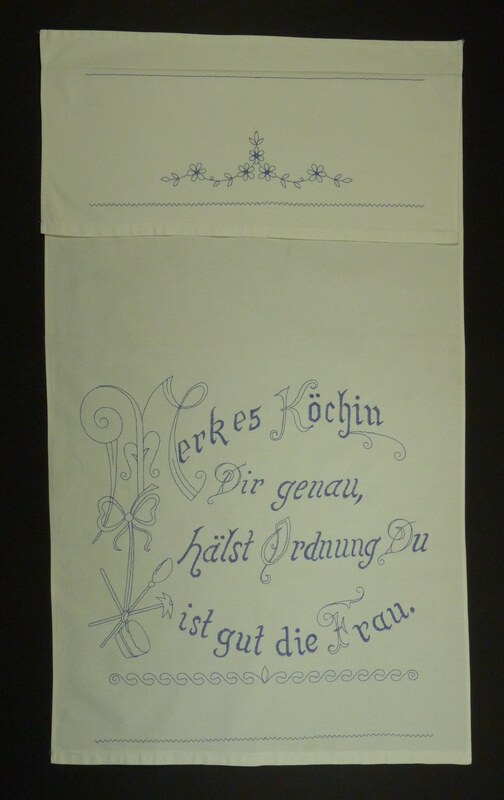 Merk es Köchin
Dir genau,
hälst Ordnung Du
ist gut die Frau.